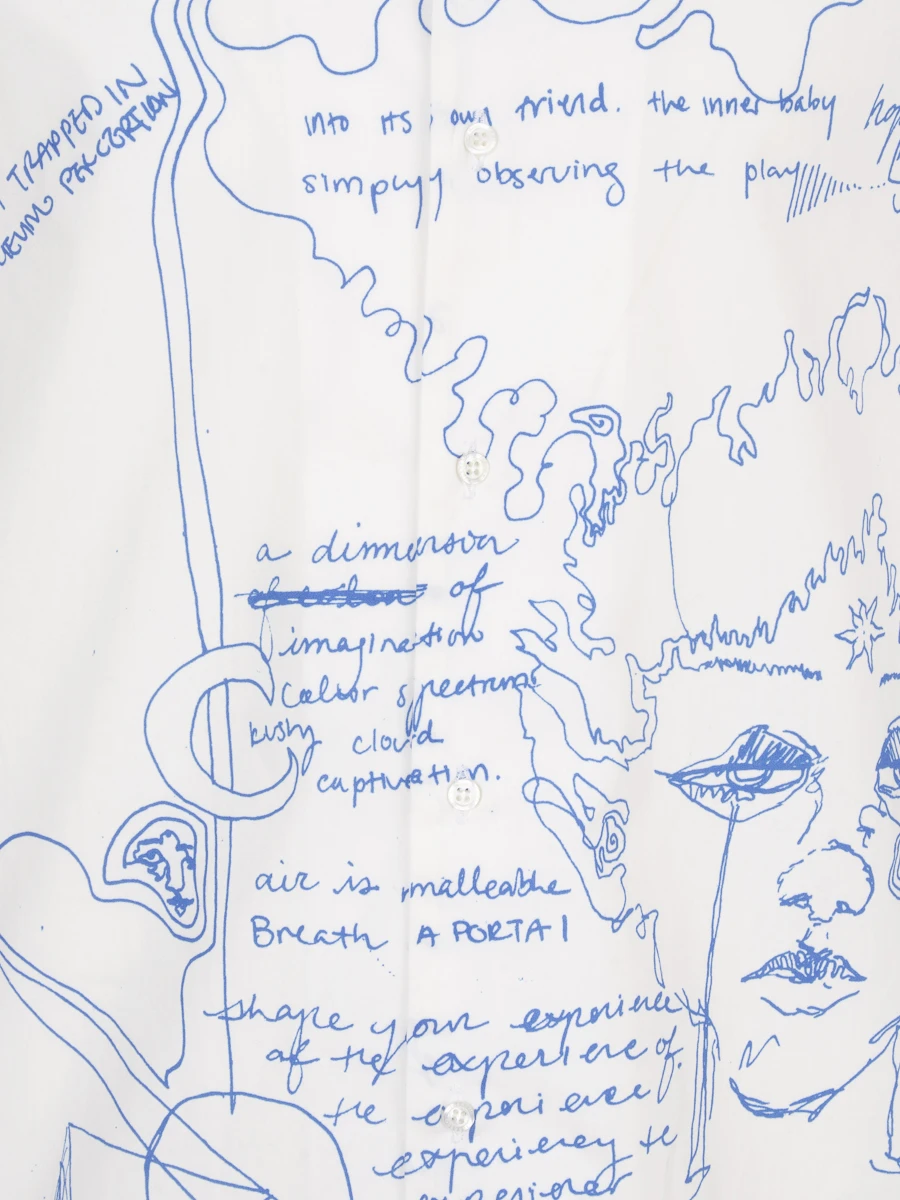 TRAPPED IN
into its own friend. the inner baby
simply observing the play
a dimmension
of
imagination
Color spectrum
kushy cloud
captivation.
air is malleable
Breath A PORTAl
shape your experience
of the experience of
the experience
experiencing the